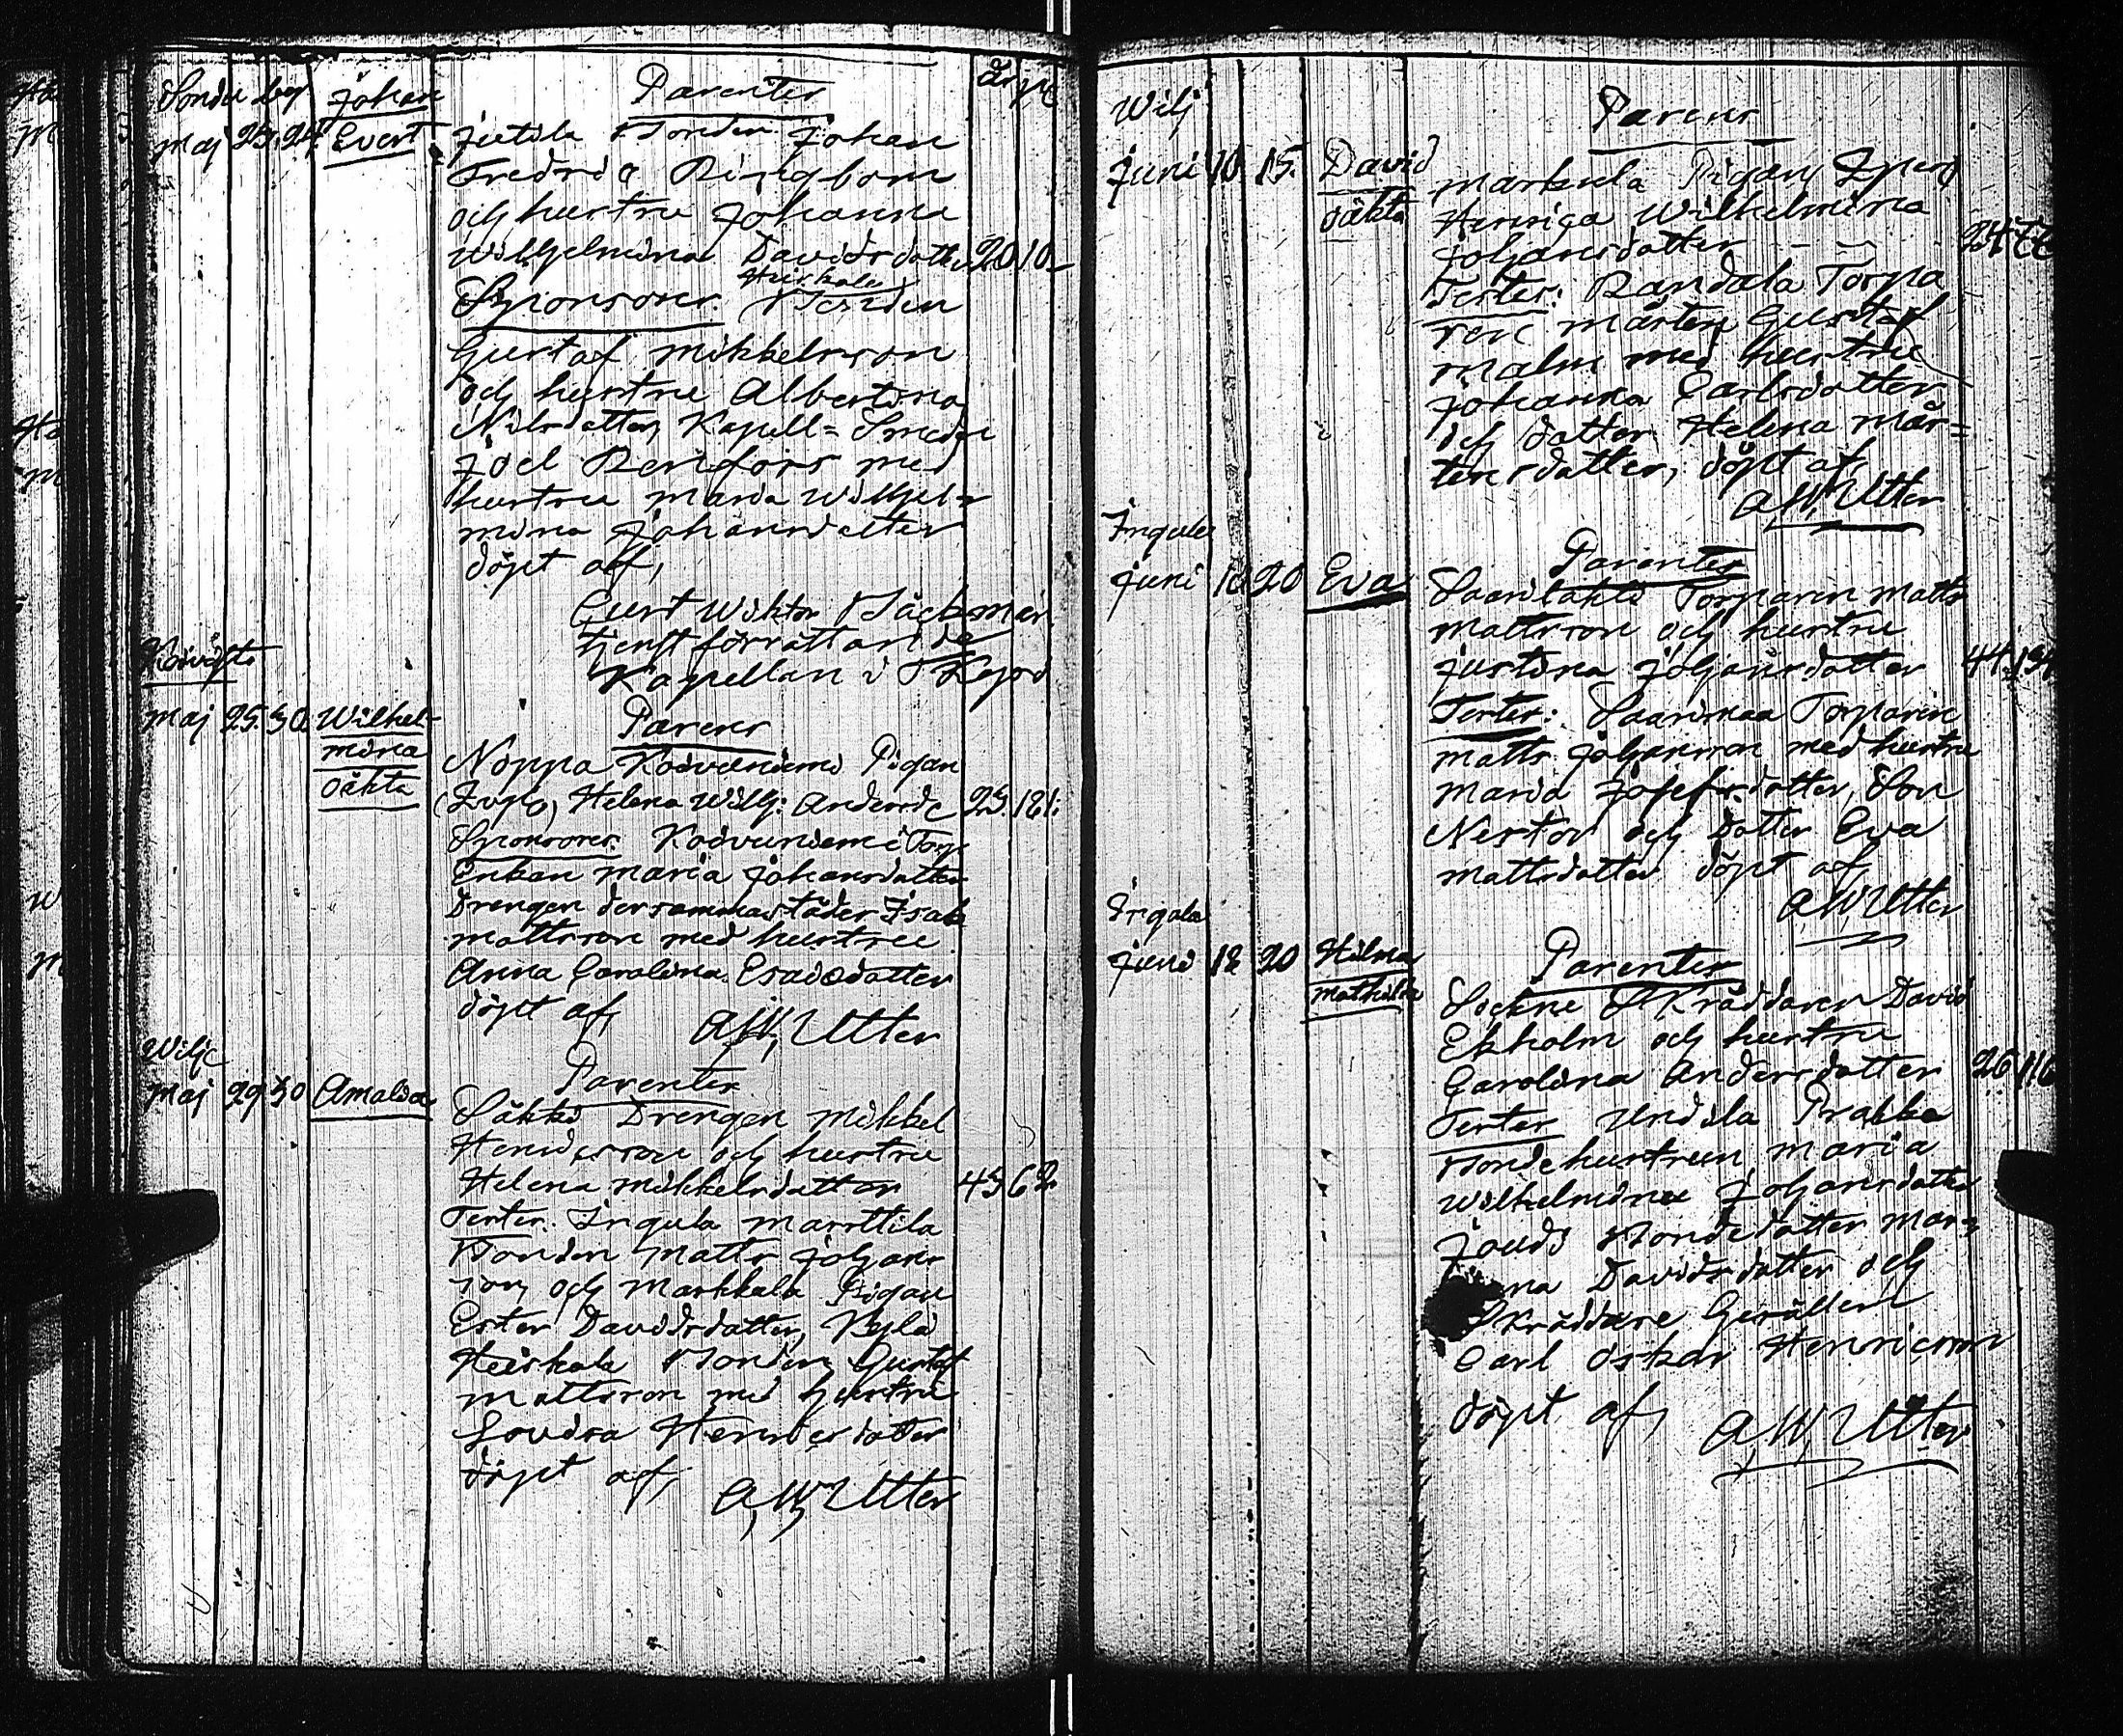 Johan
Parenter
maj 23. 24. Evert
Jutila Bonden Johan
Fredric Ringbom
och hustru Johanna
Wilhelmina Davidsdotter 20 10
Heiskala
Sponsorer. Bonden
Gustaf Mikkelsson
och hustru Albertina
Nilsdotter, Kapell-Smeden
Joel Renfors med
hustru Maria Wilhel-
mina Johansdotter
döpt af,
Curt Wiktor Bäckman
tjenstförrättande
Kapellan i
Parens
maj 25. 30. Wilhel-
mina
oäkta
Noppa Koivuniemi Pigan
Helena Wilh: Andersd: 23. 181.
Sponsorer. Koivuniemi Torp
Enkan Maria Johansdotter
Drengen dersammastäder Isak
Mattsson med hustru
Anna Carolina Esaiædotter
döpt af, A, W, Utter
Parenter
maj 29 30 Amalia
Säkki Drengen Mikkel
Henricsson och hustru
Helena Mikkelsdotter 43 62.
Tester. Ingula Marttila
Bonden Matts Johans
son, och Markkula Pigan
Ester Davidsdotter, Kylä
Heiskala Bonden Gustaf
Mattsson med hustru
Lovisa Henricsdotter
döpt af, A, W, Utter
Wilj
Parens
Juni 10 15. David
oäkta
Markula Pigan
Henrica Wilhelmina
Johansdotter
Tester: Randala Torpa
ren Mårten Gustaf
Malm med hustru
Johanna Carlsdotter
och dotter Helena Mår-
tensdotter, döpt af
A, W, Utter
Ingula
Parenter
Juni 20 Eva
Saarilahti Torparen Matts
Mattsson och hustru
Justina Johansdotter 44. 134
Tester: Saarimaa Torparen
Matts Johansson med hustru
Maria Josefsdotter, Son
Nestor och dotter Eva
Mattsdotter döpt af
A W Utter
Ingula
Parenter
Juni 18 20 Hilma
Mathilda
Sockne Skräddaren David
Ekholm och hustru
Carolina Andersdotter 26 116
Tester Undila Prakka
Bondehustrun Maria
Wilhelmina Johansdotter
Jouds Bondedotter
Davidsdotter och
Skräddare Gesällen
Carl Oskar Henricsson
döpt af, A, W, Utter